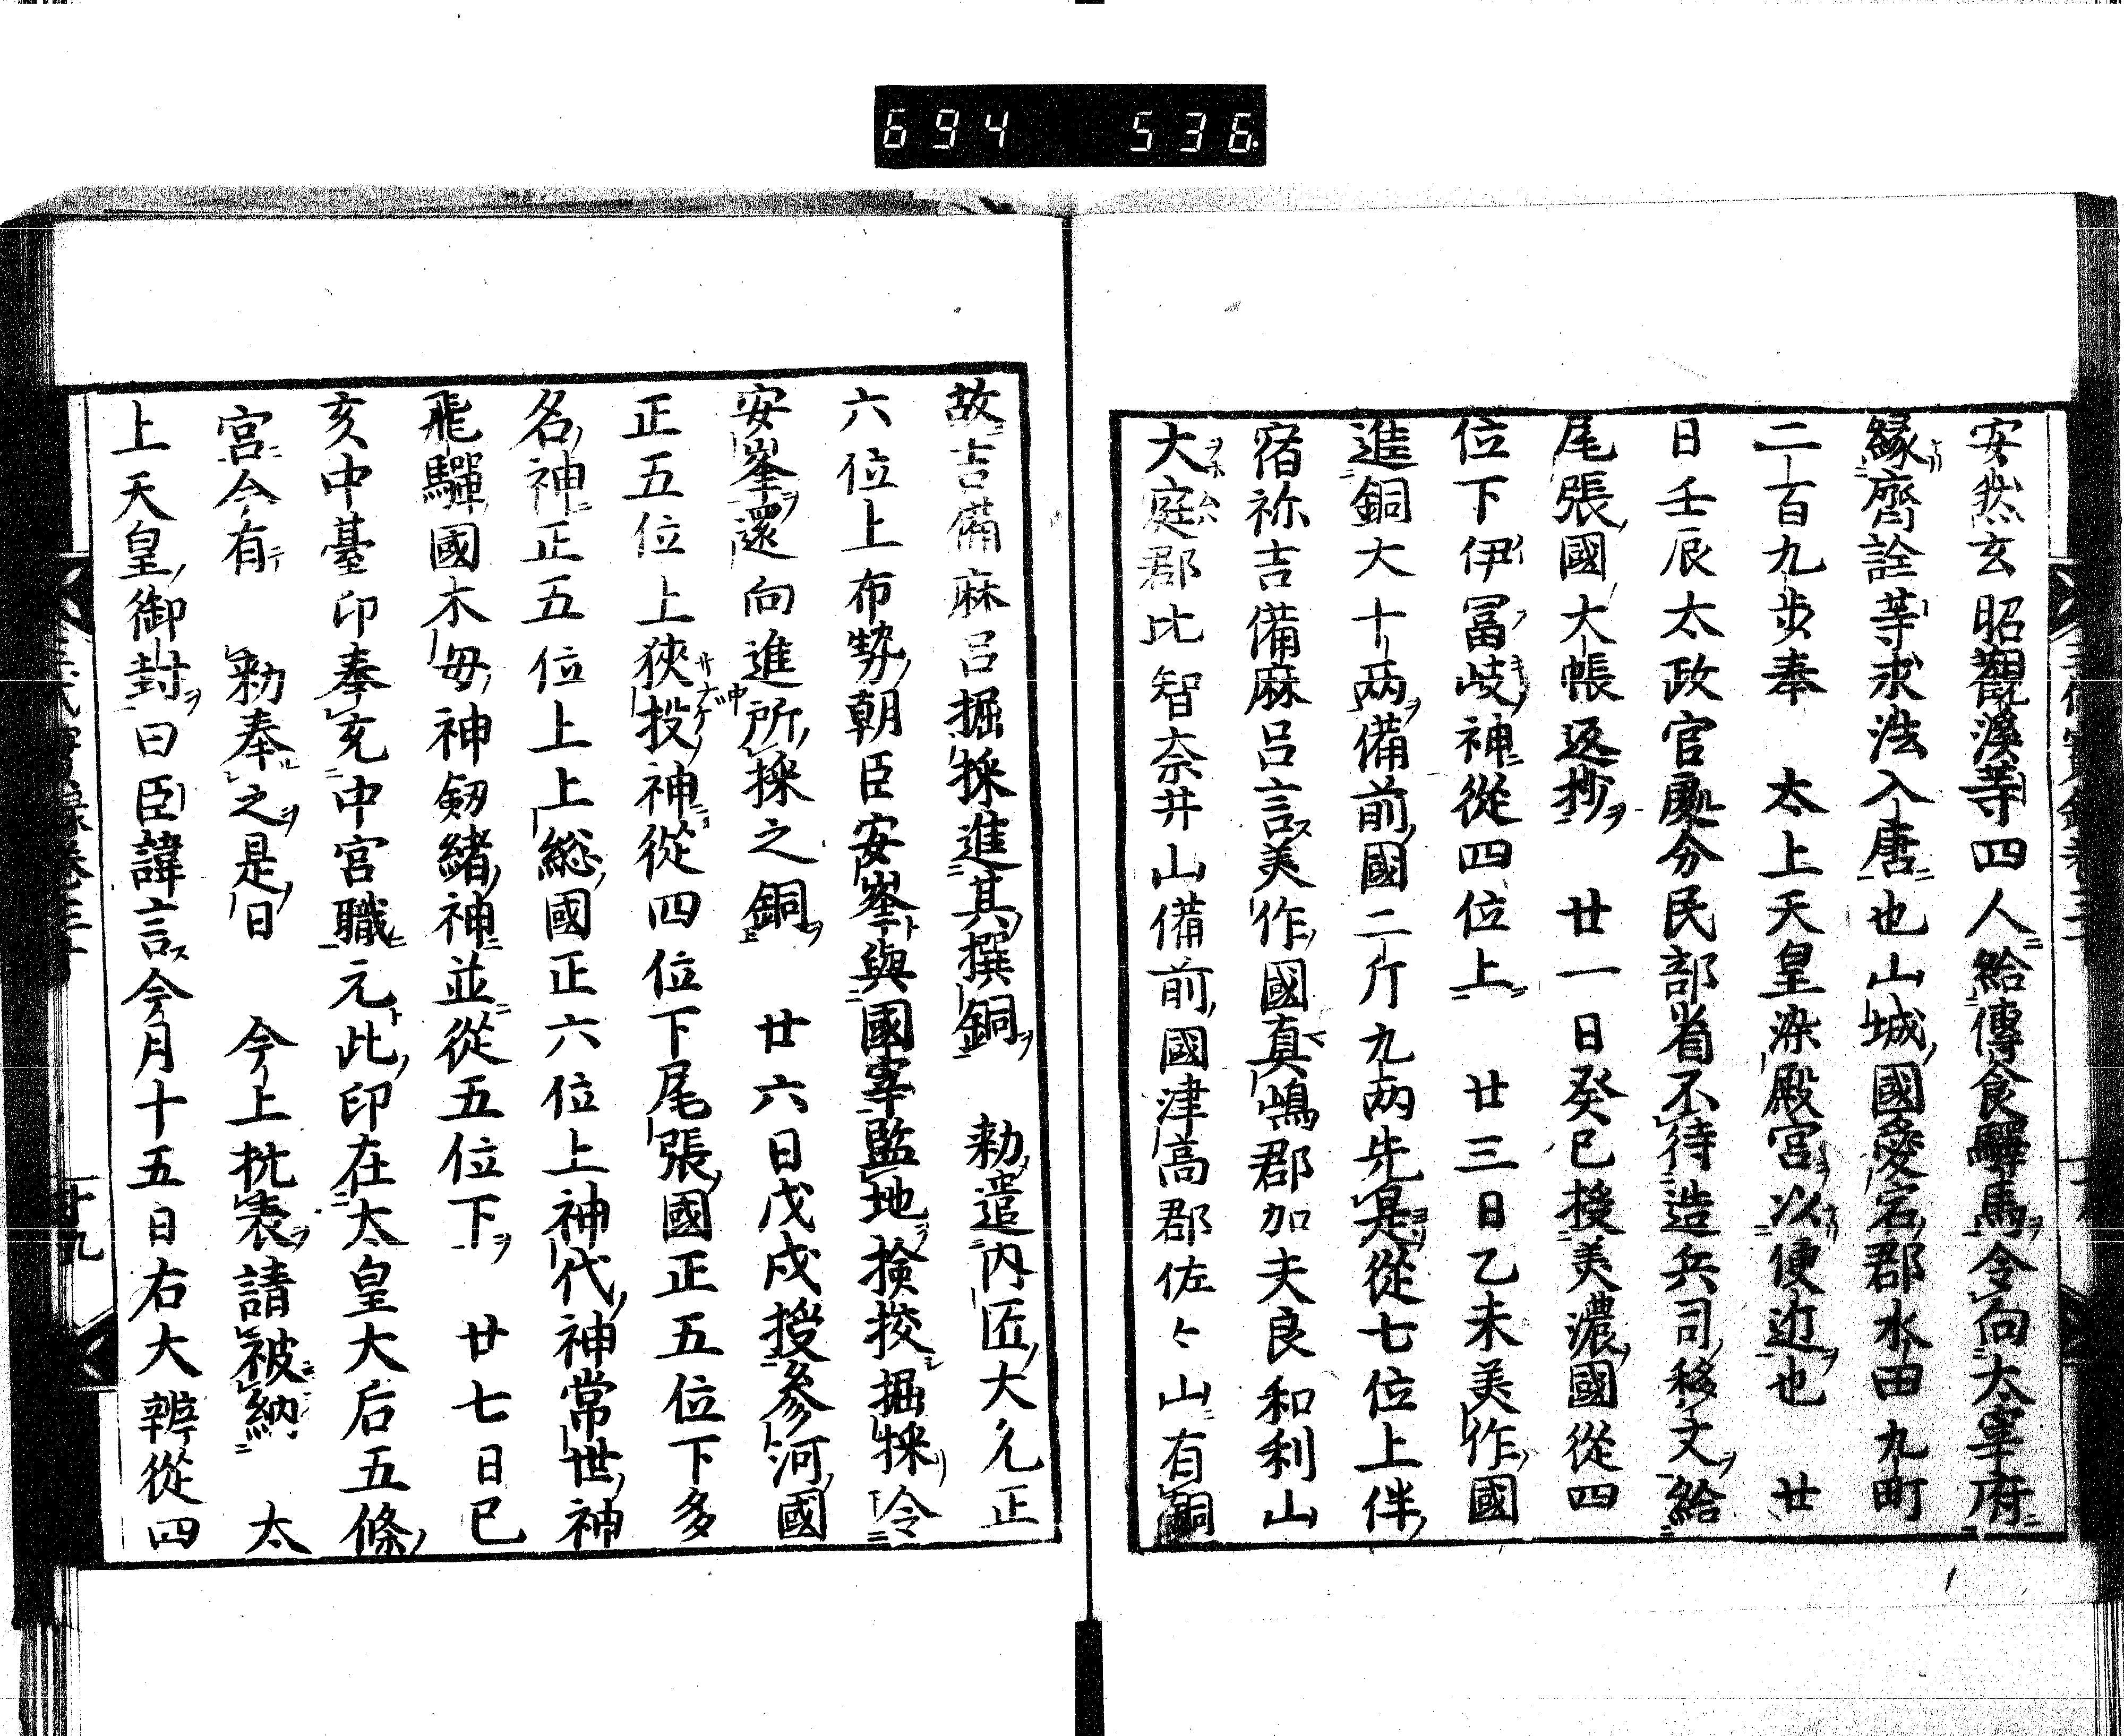 694 536
安然玄昭觀溪等四人給傳食驛馬令向大宰府
緣齊詮等求法入唐也山城國愛宕郡水田九町
二百九步奉 太上天皇染殿宮以便近也 廿
日壬辰太政官處分民部省不待造兵司移文給
尾張國大帳返抄 廿一日癸巳授美濃國從四
位下伊冨岐神從四位上 廿三日乙未美作國
進銅大十兩備前國二斤九兩先是從七位上伴
宿祢吉備麻呂言美作國真嶋郡加夫良和利山
大庭郡比智奈井山備前國津高郡佐々山有銅
故吉備麻呂掘採進其撰銅 勑遣內匠大允正
六位上布勢朝臣安峯與國宰監地撿挍掘採令
安峯還向進所採之銅 廿六日戊戌授參河國
正五位上狹投神從四位下尾張國正五位下多
名神正五位上上総國正六位上神代神常世神
飛驒國木母神劔緒神並從五位下 廿七日已
亥中臺印奉充中宮職元此印在太皇大后五條
宮今有 勑奉之是日 今上抗表請被納 太
上天皇御封曰臣諱言今月十五日右大辨從四
十九